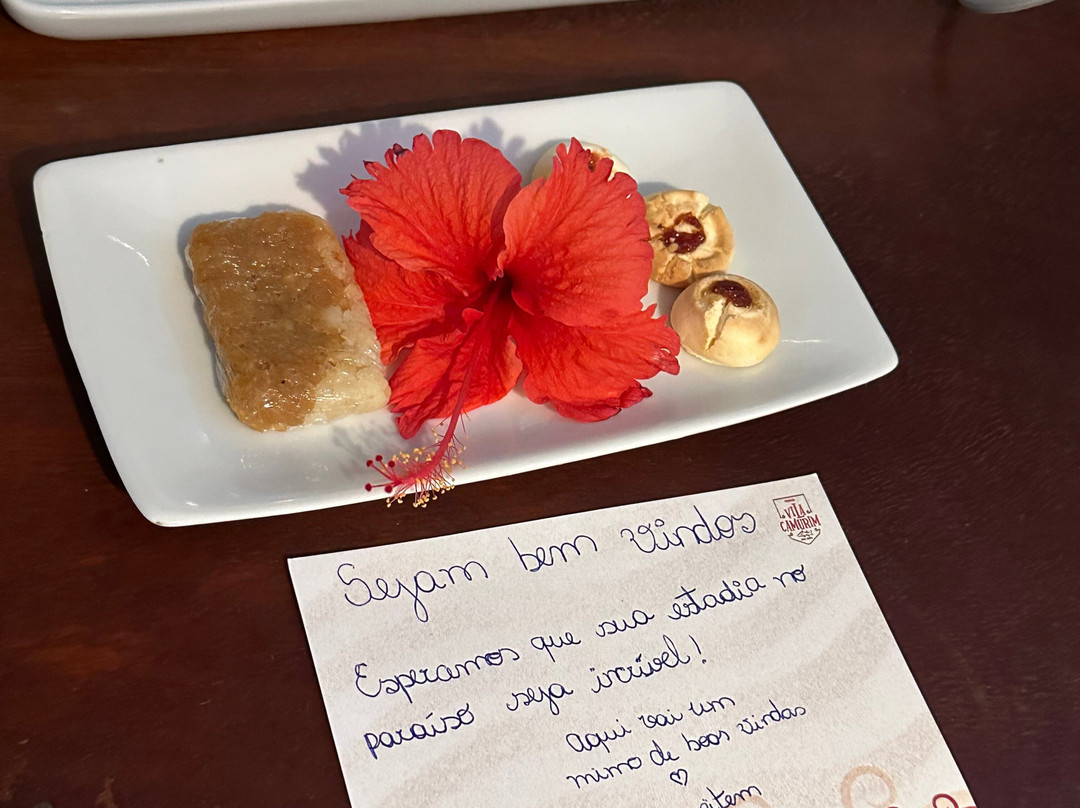 Sejam bem vindos
VILA
CAMORIM
Esperamos que sua estadia no
paraíso seja incrível!
Aqui vai um
mimo de boas vindas